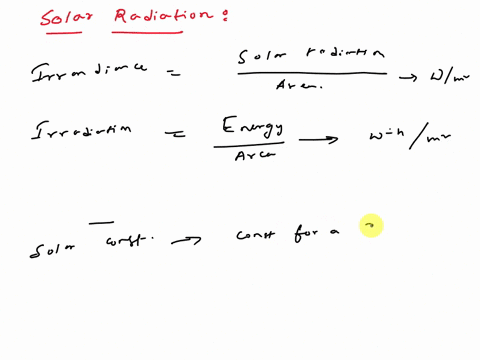 Solar Radiation :
Irrandiance = Solar radiation / Area. → W/m²
Irradiation = Energy / Area → w-h/m²
Solar const. → const for a